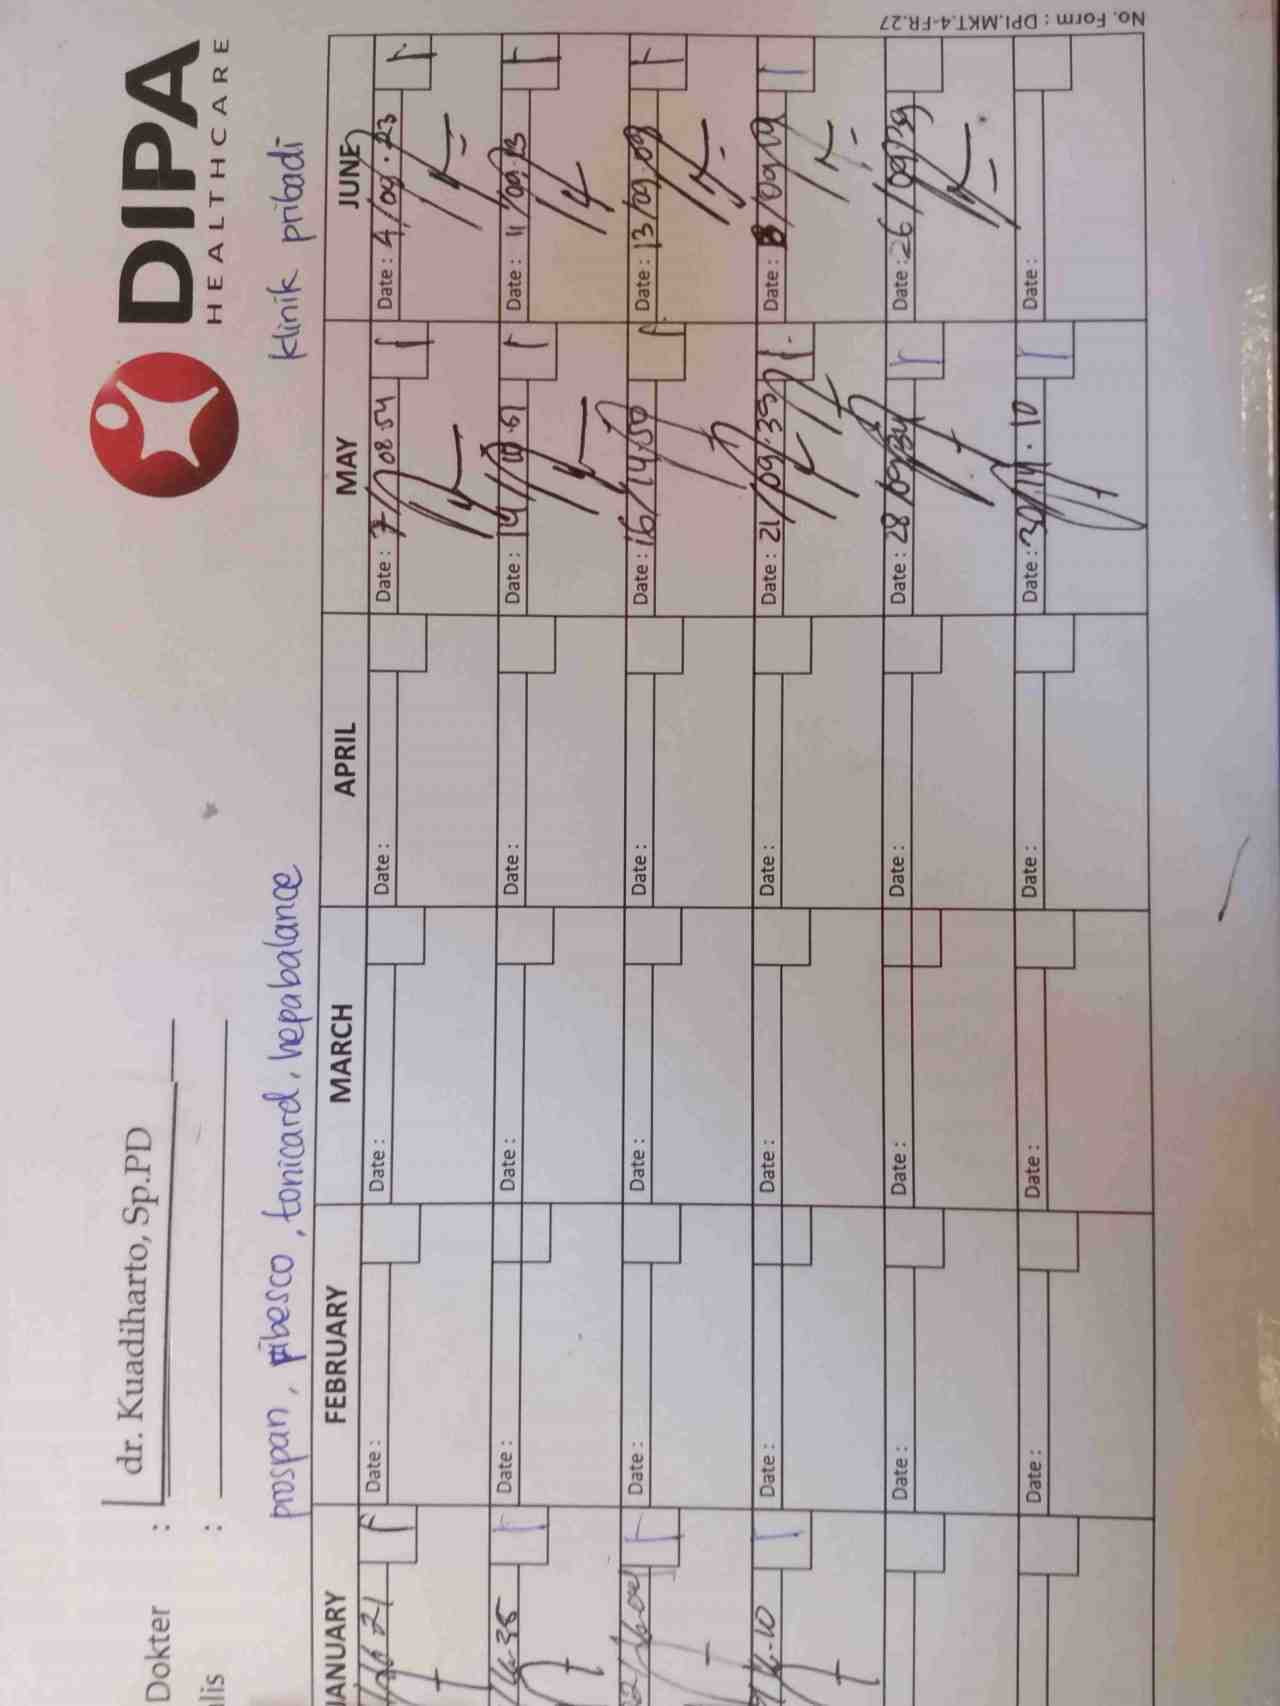 DIPA
HEALTHCARE
Dokter : dr. Kuadiharto, Sp.PD
alis :
prospan, pibesco, tonicard, hepabalance
klinik pribadi
JANUARY FEBRUARY MARCH APRIL MAY JUNE
21 Date : Date : Date : Date : 7/08.54 Date : 4/09.23
Date : Date : Date : Date : 14/ Date : 11/09.13
Date : Date : Date : Date : 16/14.50 Date : 13/09.09
.10 Date : Date : Date : Date : 21/09.35 Date :
Date : Date : Date : Date : 28/09.34 Date : 26/09.39
Date : Date : Date : Date : 30/14.10 Date :
No. Form : DPI.MKT.4-FR.27